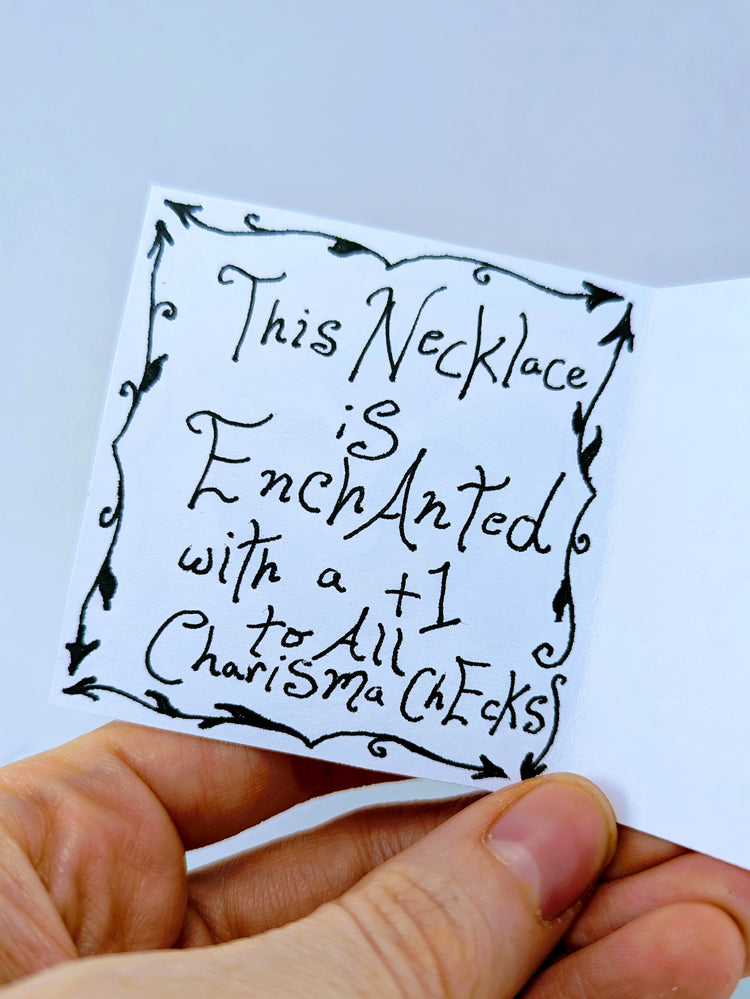 This Necklace
is
EnchAnted
with a +1
to All
ChariSma ChEcKs